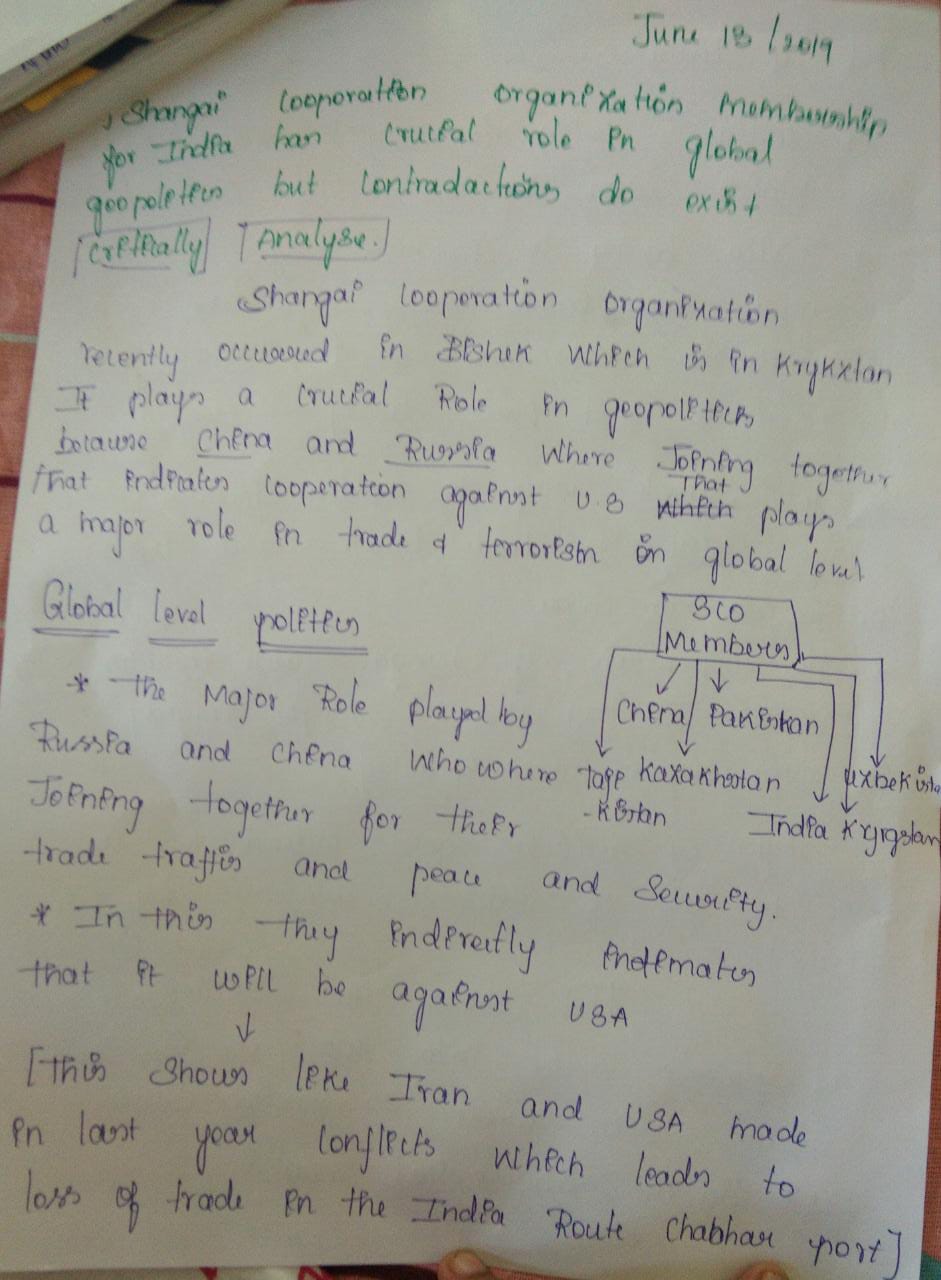 June 13/2019
, Shangai Cooporation Organixation Membership
for India has crucial role in global
geopolitics but contradactions do exist
[Critically] [Analyse.]
Shangai Cooporation Organixation
recently occured in Bishek which is in Krykxtan
It plays a crucial Role in geopolitics
because China and Russsia where Joining together
that indicates cooperation against U.S which That plays
a major role in trade & terrorism in global level
Global level politics
SCO
Members
* the Major Role played by
China Pakistan
Russia and China who where
Taji Kaxakhstan uxbekista
Joining together for their
-Kistan India Kyrgstan
trade traffis and peace and Security.
* In this they indirectly intimates
that it will be against USA
[This Shows like Iran and USA made
in last year conflicts which leads to
loss of trade in the India Route Chabhar port]